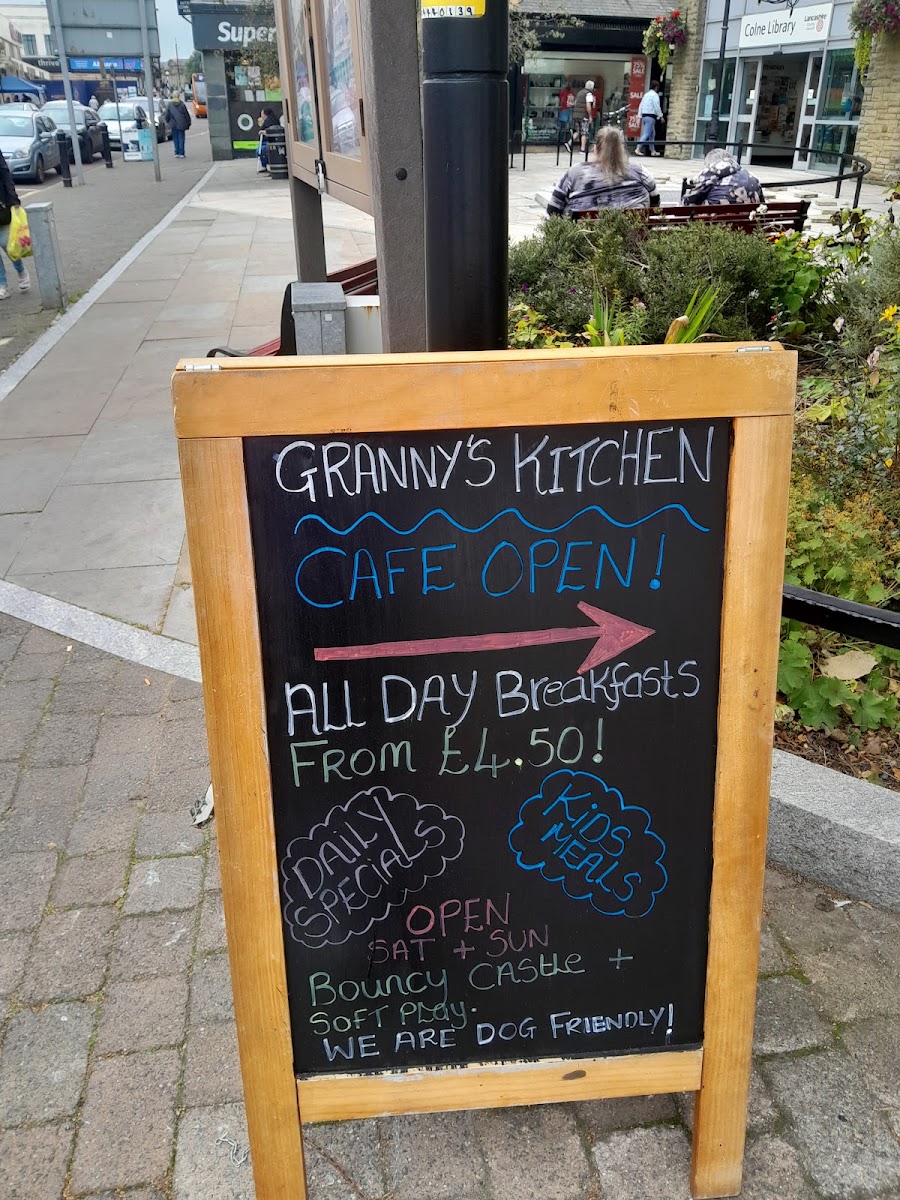 440139
Super
thrive
Colne Library
Lancashire
SALE
GRANNY'S KITCHEN
CAFE OPEN!
ALL DAY Breakfasts
From £4.50!
DAILY
SPECIALS
KiDS
MEALS
OPEN
SAT + SUN
Bouncy Castle +
SOFT PLay.
WE ARE DOG FRIENDLY!